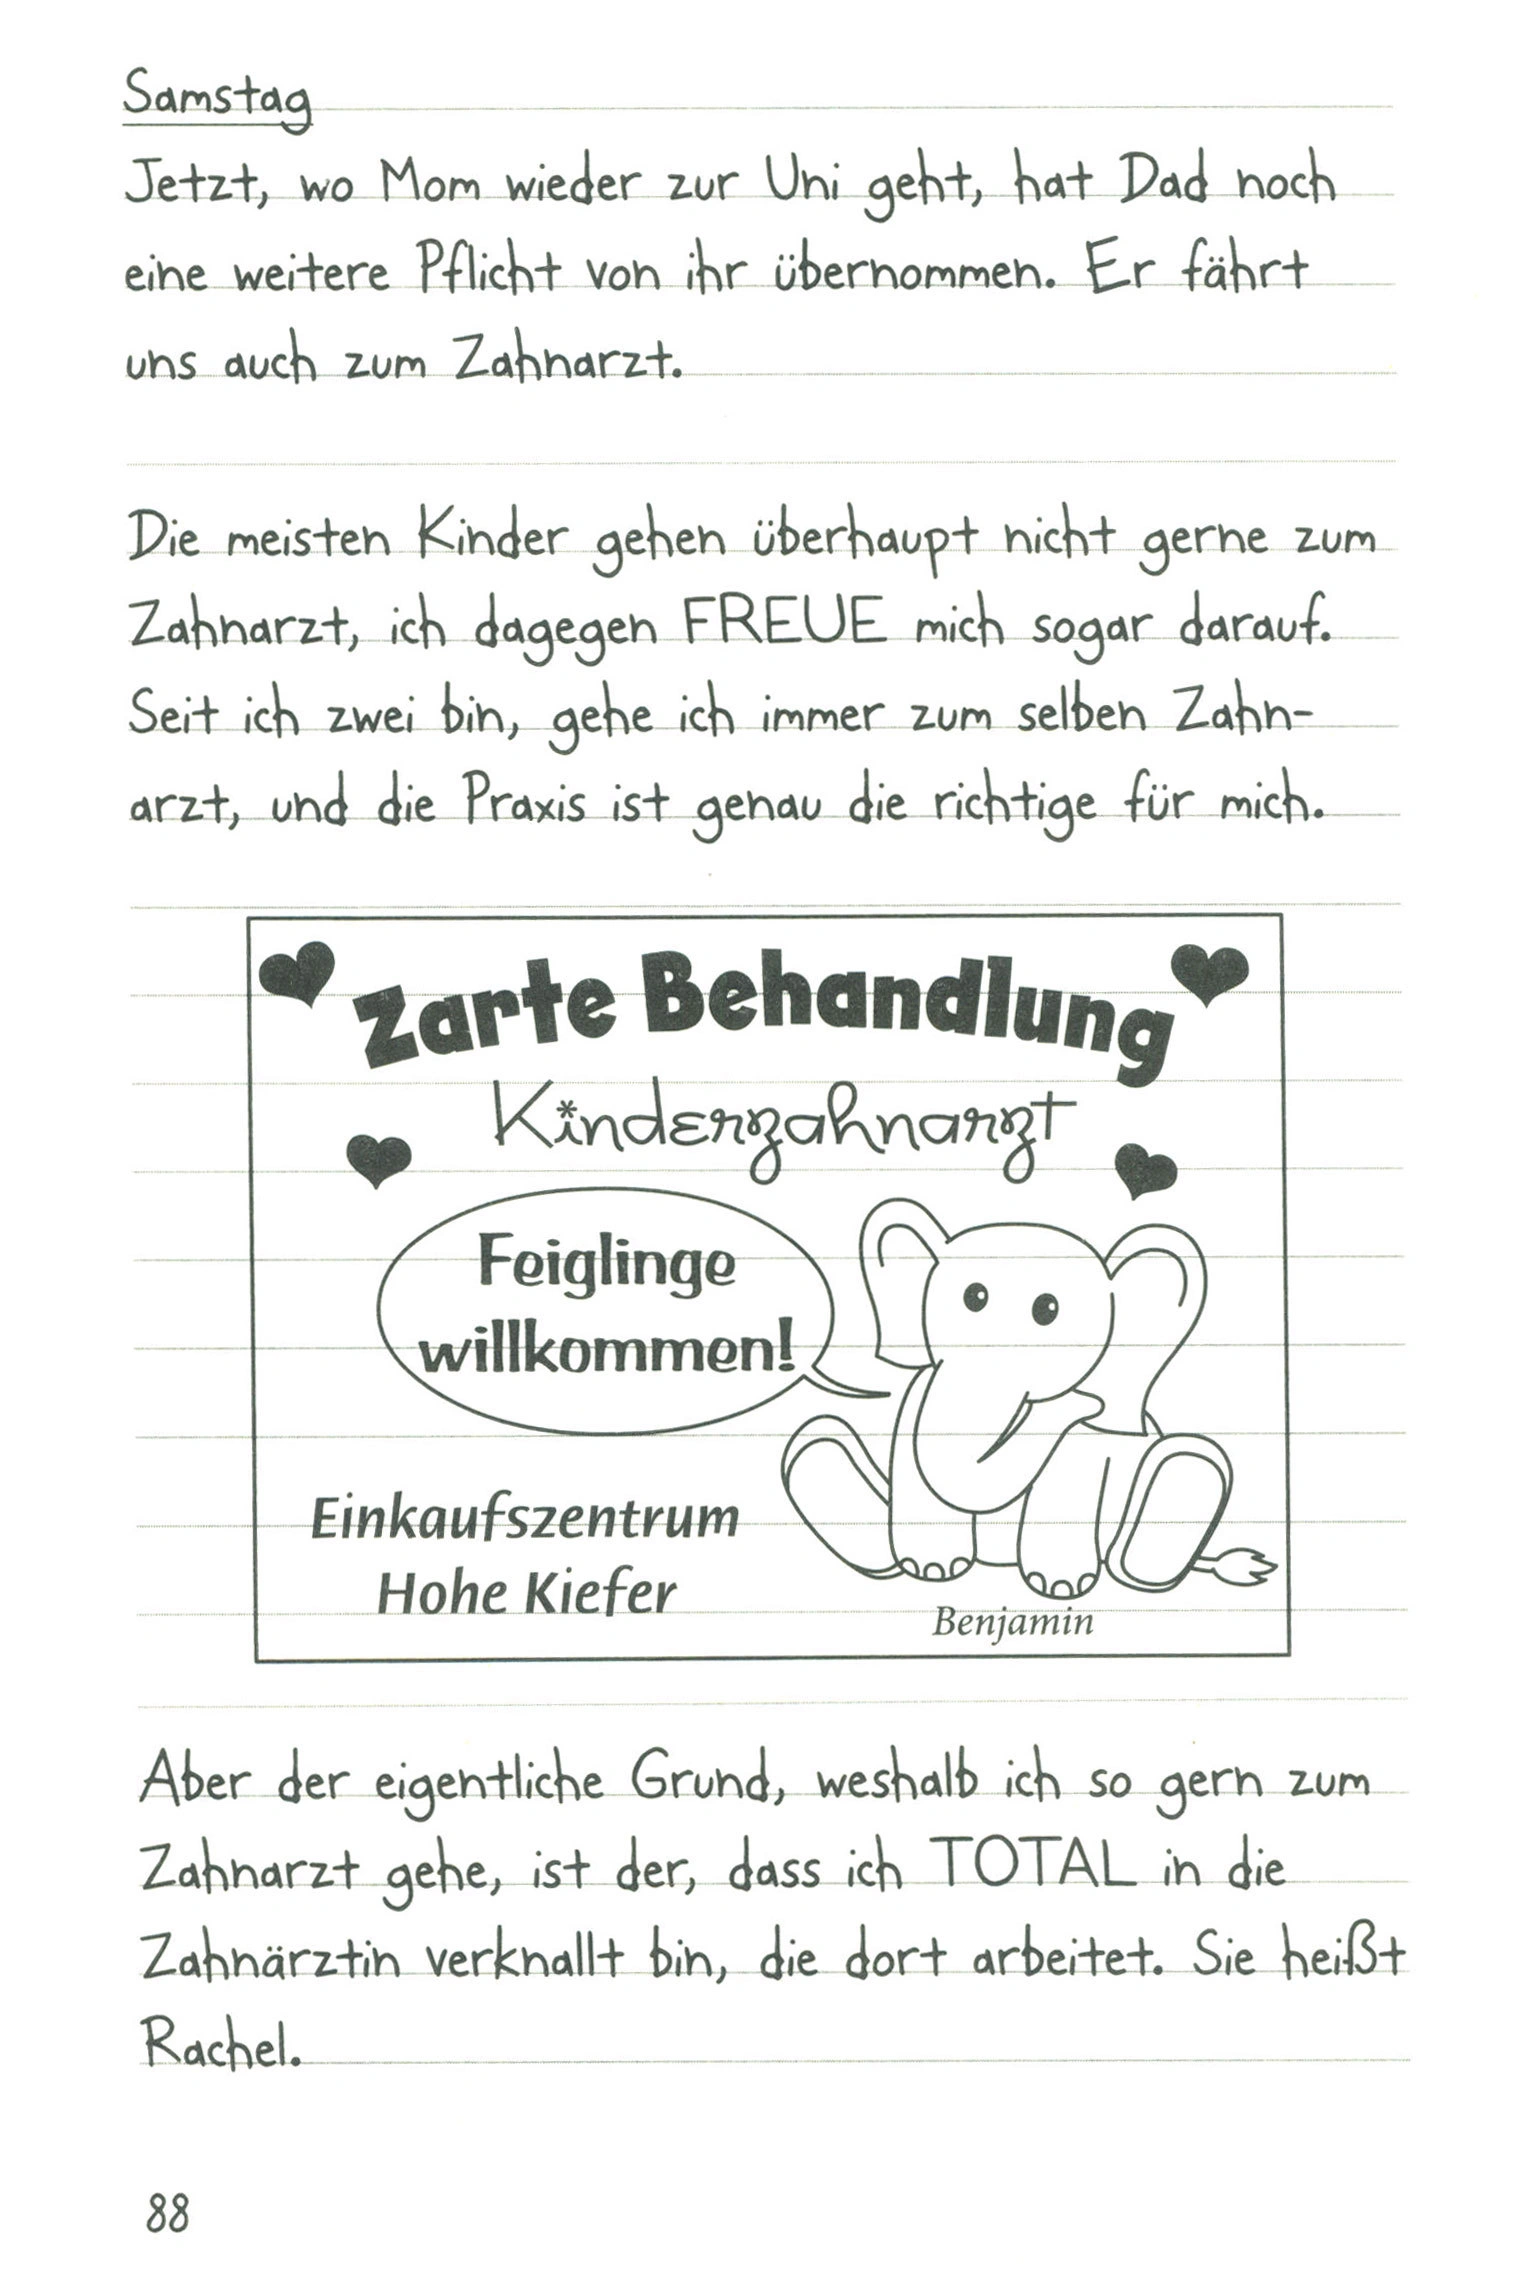 Samstag
Jetzt, wo Mom wieder zur Uni geht, hat Dad noch
eine weitere Pflicht von ihr übernommen. Er fährt
uns auch zum Zahnarzt.
Die meisten Kinder gehen überhaupt nicht gerne zum
Zahnarzt, ich dagegen FREUE mich sogar darauf.
Seit ich zwei bin, gehe ich immer zum selben Zahn-
arzt, und die Praxis ist genau die richtige für mich.
Zarte Behandlung
Kinderzahnarzt
Feiglinge
willkommen!
Einkaufszentrum
Hohe Kiefer
Benjamin
Aber der eigentliche Grund, weshalb ich so gern zum
Zahnarzt gehe, ist der, dass ich TOTAL in die
Zahnärztin verknallt bin, die dort arbeitet. Sie heißt
Rachel.
88